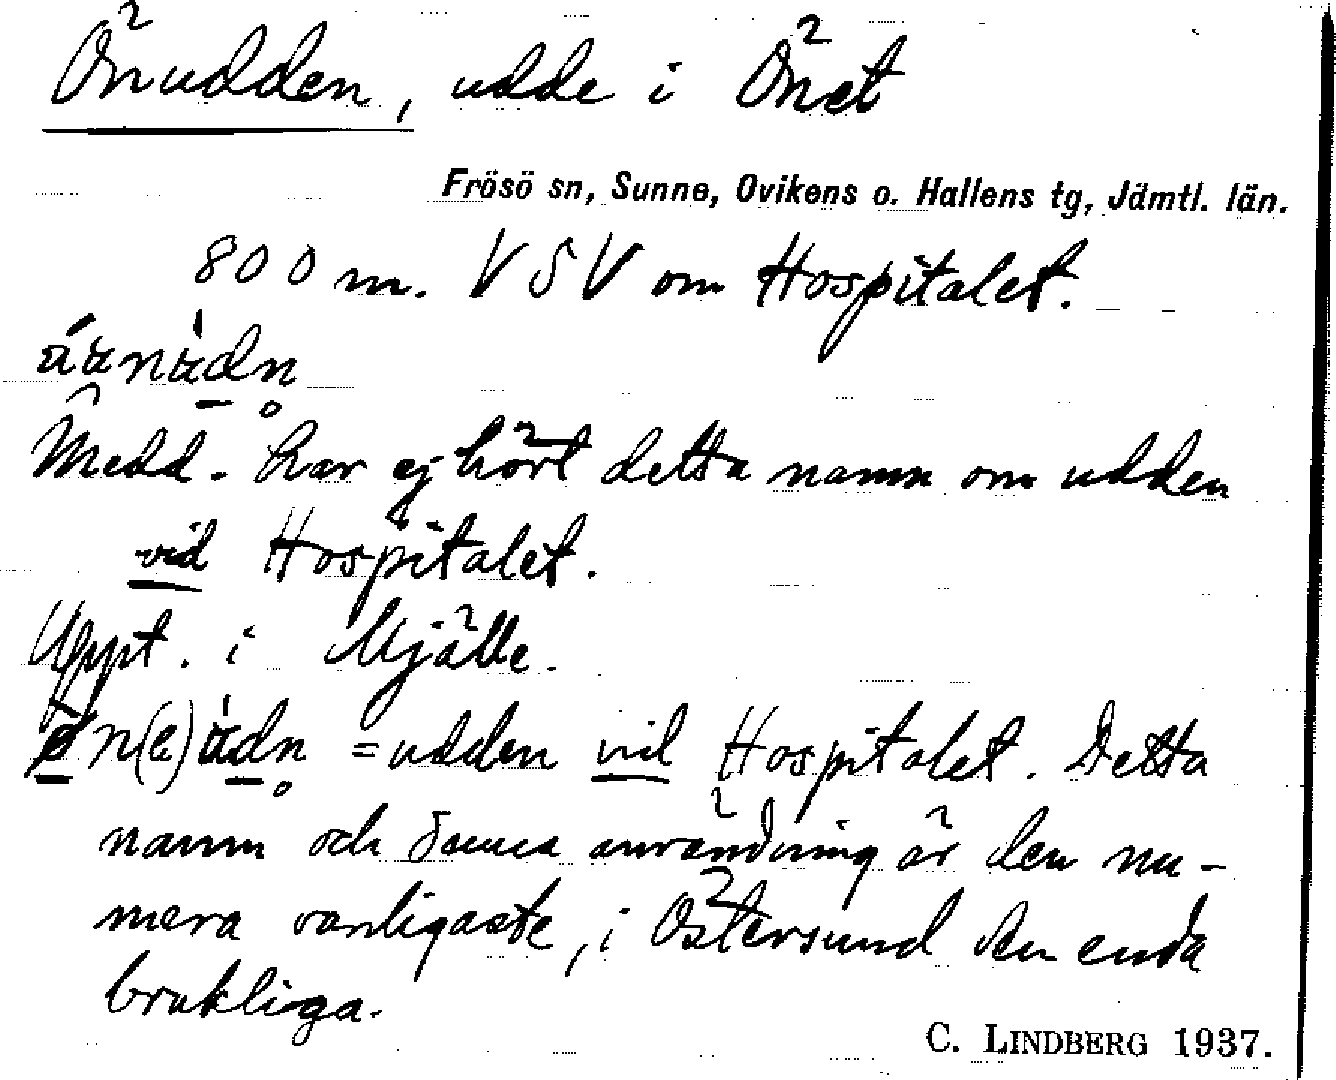 Önudden, udde i Önet
Frösö sn, Sunne, Ovikens o. Hallens tg, Jämtl. län.
800 m. VSV om Hospitalet.
Medd. har ej hört detta namn om udden
vid Hospitalet.
Uppt. i Mjälle.
= udden vid Hospitalet. Detta
namn och denna användning är den nu-
mera vanligaste, i Östersund den enda
brukliga.
C. LINDBERG 1937.